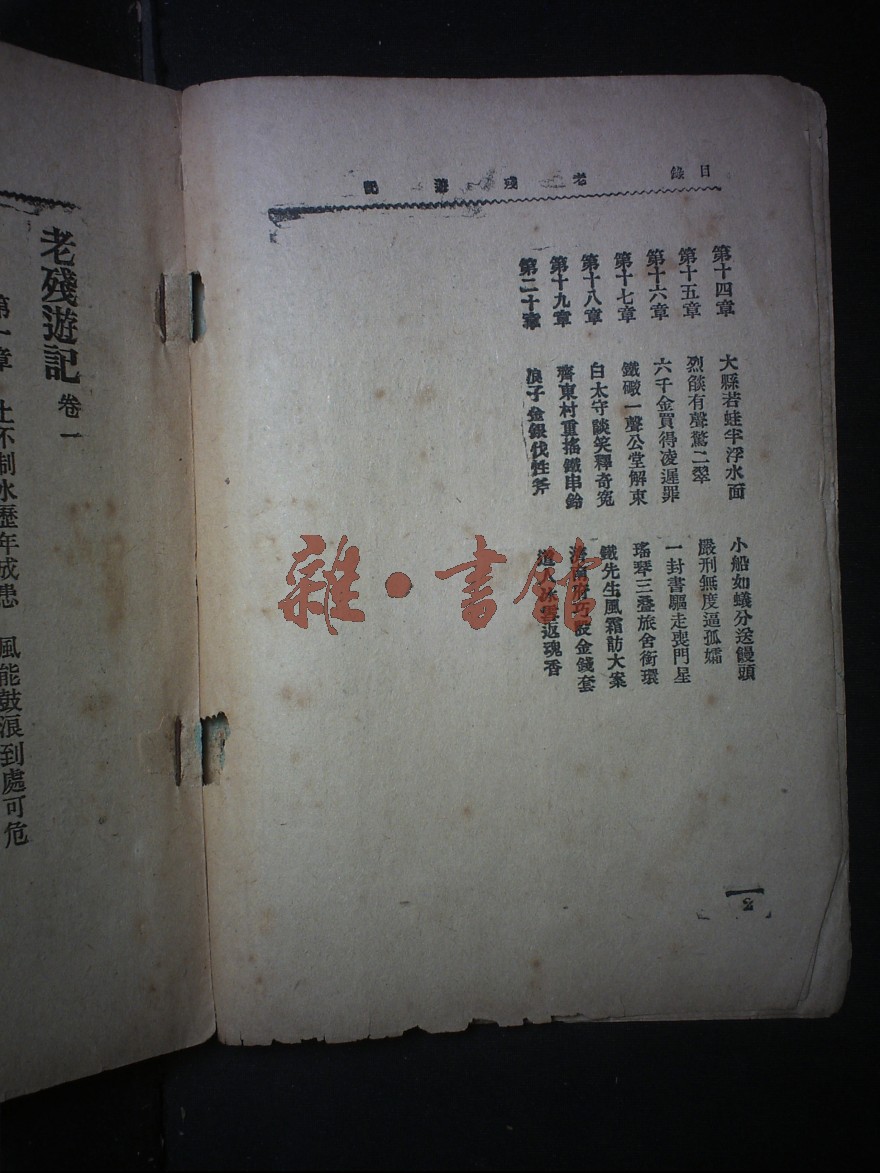 目錄
老殘遊記
第十四章 大縣若蛙半浮水面 小船如蟻分送饅頭
第十五章 烈燄有聲驚二翠 嚴刑無度逼孤孀
第十六章 六千金買得凌遲罪 一封書驅走喪門星
第十七章 鐵礮一聲公堂解東 瑤琴三疊旅舍銜環
第十八章 白太守談笑釋奇冤 鐵先生風霜訪大案
第十九章 齊東村重搖鐵串鈴 濟南府巧設金錢套
第二十章 浪子金銀伐性斧 道人冰雪返魂香
老殘遊記 卷一
第一章 土不制水歷年成患 風能鼓浪到處可危
雜·書館